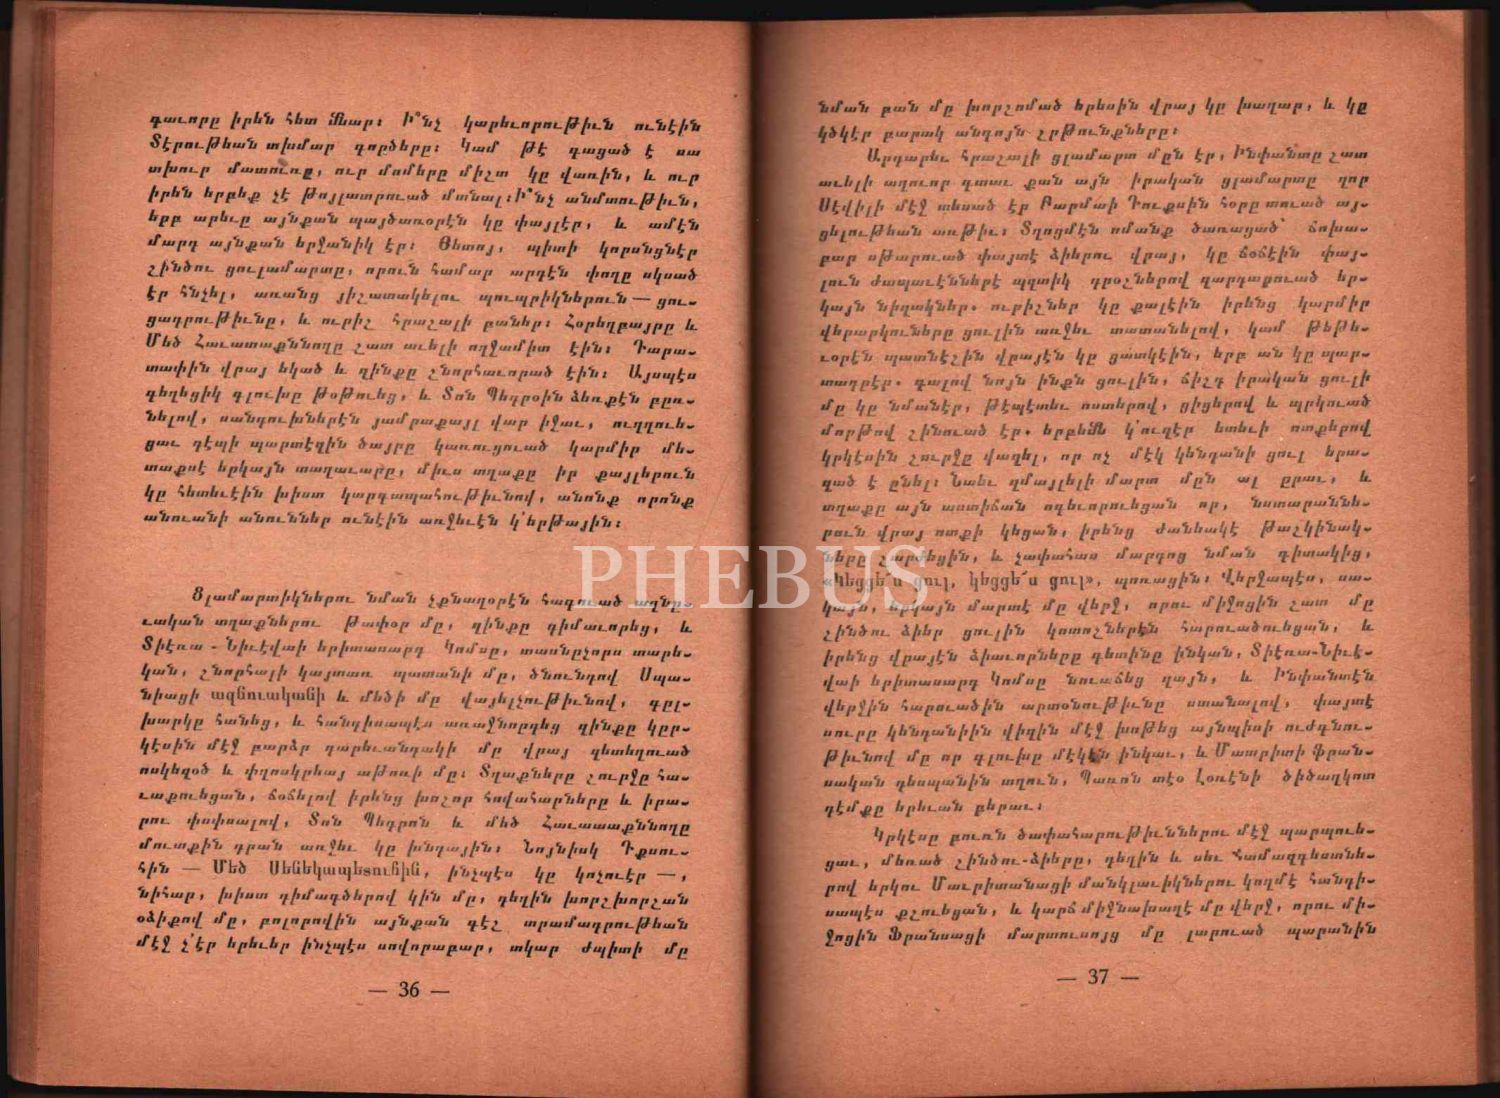 գաւորը իրեն հետ մնար։ Ի՞նչ կարեւորութիւն ունէին
Տէրութեան տխմար գործերը։ Կամ թէ գացած է սա
տխուր մատուռը, ուր մոմերը միշտ կը վառին, և ուր
իրեն երբեք չէ թոյլատրուած մտնալ։ Ի՞նչ անմտութիւն,
երբ արեւը այնքան պայծառօրէն կը փայլէր, և ամէն
մարդ այնքան երջանիկ էր։ Յետոյ, պիտի կորսնցնէր
շինծու ցուլամարտը, որուն համար արդէն փողը սկսած
էր հնչել, առանց յիշատակելու պուպրիկներուն — ցու-
ցադրութիւնը, և ուրիշ հրաշալի բաներ։ Հօրեղբայրը և
Մեծ Հաւատաքննողը շատ աւելի ողջամիտ էին։ Դարա-
տափին վրայ եկած և զինքը շնորհաւորած էին։ Այսպէս
գեղեցիկ գլուխը թօթուեց, և Տոն Պեդրօին ձեռքէն բըռ-
նելով, սանդուխներէն յամրաքայլ վար իջաւ, ուղղուե-
ցաւ դէպի պարտէզին ծայրը կառուցուած կարմիր մե-
տաքսէ երկայն տաղաւարը, միւս տղաքը իր քայլերուն
կը հետեւէին խիստ կարգապահութիւնով, անոնք որոնք
անուանի անուններ ունէին առջեւէն կ՚երթային։
Ցլամարտիկներու նման շքնաղօրէն հագուած ազնը-
ւական տղաքներու թափօր մը, զինքը դիմաւորեց, և
Տիէռա - Նիւէվաի երիտասարդ Կոմսը, տասնըչորս տարե-
կան, շնորհալի կայտառ պատանի մը, ծնունդով Սպա-
նիացի ազնուականի և մեծի մը վայելչութիւնով, գըլ-
խարկը հանեց, և հանդիսապէս առաջնորդեց զինքը կըր-
կէսին մէջ բարձր դարեւանդակի մը վրայ զետեղուած
ոսկեզօծ և փղոսկրեայ աթոռի մը։ Տղաքները շուրջը հա-
ւաքուեցան, ճօճելով իրենց խոշոր հովահարները և իրա-
րու փսփսալով, Տոն Պեդրոն և մեծ Հաւատաքննողը
մուտքին դրան առջեւ կը խնդային։ Նոյնիսկ Դքսու-
հին — Մեծ Սենեկապետուհին, ինչպէս կը կոչուէր —,
նիհար, խիստ դիմագծերով կին մը, դեղին խորշխորշան
օձիքով մը, բոլորովին այնքան գէշ տրամադրութեան
մէջ չ՚էր երեւեր ինչպէս սովորաբար, տկար ժպիտի մը
— 36 —
նման բան մը խորշոմած երեսին վրայ կը խաղար, և կը
կծկէր բարակ անգոյն շրթունքները։
Արդարեւ հրաշալի ցլամարտ մըն էր, Ինֆանտը շատ
աւելի աղուոր գտաւ քան այն իրական ցլամարտը զոր
Սէվիլի մէջ տեսած էր Բարմաի Դուքսին հօրը տուած այ-
ցելութեան առթիւ։ Տղոցմէն ոմանք ծառացած՝ ճոխա-
բար սթարուած փայտէ ձիերու վրայ, կը ճօճէին փայ-
լուն ժապաւէններէ պզտիկ դրօշներով զարդաքուած եր-
կայն նիզակներ. ուրիշներ կը քալէին իրենց կարմիր
վերարկուները ցուլին առջեւ տատանելով, կամ թեթե-
ւօրէն պատնէշին վրայէն կը ցատկէին, երբ ան կը պար-
տադրէր. գալով նոյն ինքն ցուլին, ճիշդ իրական ցուլի
մը կը նմանէր, թէպէտեւ ոստերով, ցիցերով և պրկուած
մորթով շինուած էր. երբեմն կ՚ուզէր ետեւի ոտքերով
կրկէսին շուրջը վազել, որ ոչ մէկ կենդանի ցուլ երա-
զած է ընել։ Նաեւ զմայլելի մարտ մըն ալ ըրաւ, և
տղաքը այն աստիճան ոգեւորուեցան որ, նստարաննե-
րուն վրայ ոտքի կեցան, իրենց ժանեակէ թաշկինակ-
ները շարժեցին, և չափահաս մարդոց նման գիտակից,
«Կեցցէ՛ս ցուլ, կեցցէ՛ս ցուլ», պոռացին։ Վերջապէս, սա-
կայն, երկայն մարտէ մը վերջ, որու միջոցին շատ մը
շինծու ձիեր ցուլին կոտոշներէն հարուածուեցան, և
իրենց վրայէն ձիաւորները գետինը ինկան, Տիէռա-Նիւէ-
վաի երիտասարդ Կոմսը նուաճեց զայն, և Ինֆանտէն
վերջին հարուածին արտօնութիւնը ստանալով, փայտէ
սուրը կենդանիին վիզին մէջ խոթեց այնպիսի ուժգնու-
թիւնով մը որ գլուխը մէկէն ինկաւ, և Մատրիտի ֆրան-
սական դեսպանին տղուն, Պառոն տէօ Լօռէնի ծիծաղկոտ
դէմքը երեւան բերաւ։
Կրկէսը բուռն ծափահարութիւններու մէջ պարպուե-
ցաւ, մեռած շինծու-ձիերը, դեղին և սեւ համազգեստնե-
րով երկու Մաւրիտանացի մանկլաւիկներու կողմէ հանդի-
սապէս քշուեցան, և կարճ միջնախաղէ մը վերջ, որու մի-
ջոցին Ֆրանսացի մարտուսոյց մը լարուած պարանին
— 37 —
PHEBUS